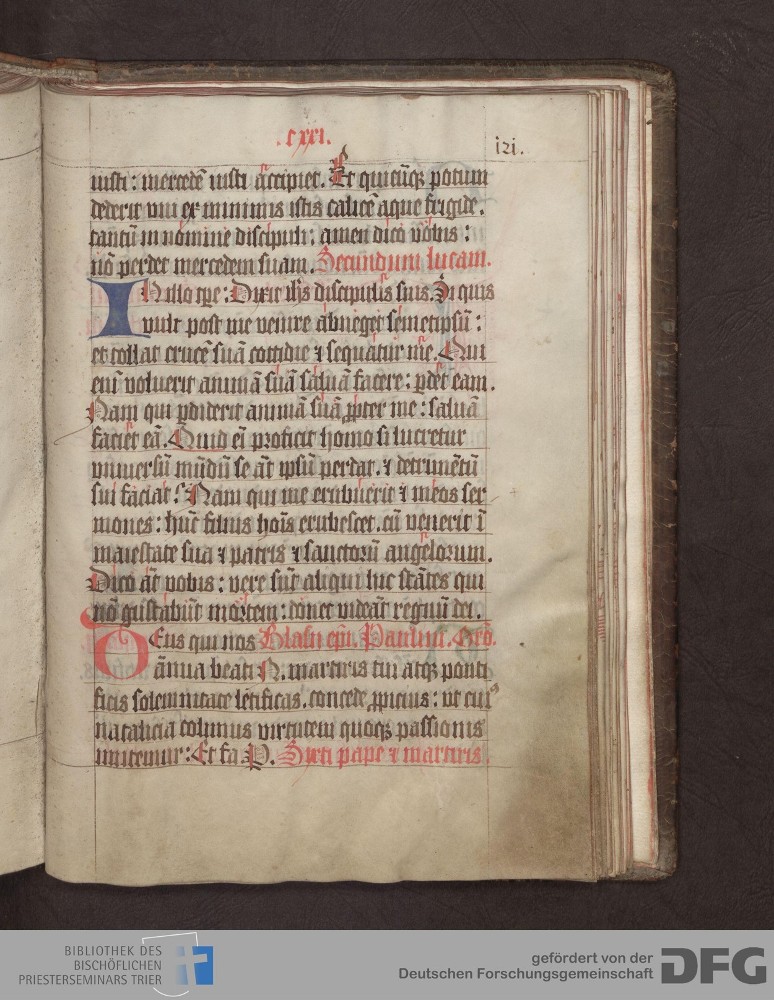 .cxxi.
121.
iusti: mercedē iusti accipiet. Et quicūqꝫ potum
dederit vni ex minimis istis calicē aque frigide.
tantū in nomine discipuli: amen dico vobis:
nō perdet mercedem suam. Secundum lucam.
IN illo tꝑe: Dixit ihs discipulis suis. Si quis
vult post me venire abneget semetipsū:
et tollat crucē suā cottidie ⁊ sequatur me. Qui
eni voluerit animā suā saluā facere: ꝑdet eam.
Nam qui ꝑdiderit animā suā ꝓpter me: saluā
faciet eā. Quid ei proficit homo si lucretur
vniuersū mūdū se aūt ipsū perdat. ⁊ detrimētū
sui faciat? Nam qui me erubuerit ⁊ meos ser
mones: hūc filius hoīs erubescet. cū venerit ī
maiestate sua ⁊ patris ⁊ sanctorū angelorum.
Dico aūt vobis: vere sūt aliqui hic stātes qui
nō gustabūt mortem: donec videāt regnū dei.
DEus qui nos Blasii epi. Paulini. Orō.
ānua beati N. martiris tui atqꝫ ponti
ficis solemnitate letificas. concede ꝓpicius: vt cuiꝰ
natalicia colimus virtutem quoqꝫ passionis
imitemur: Et fa P. Sixti pape ⁊ martiris.
BIBLIOTHEK DES
BISCHÖFLICHEN
PRIESTERSEMINARS TRIER
gefördert von der
Deutschen Forschungsgemeinschaft
DFG